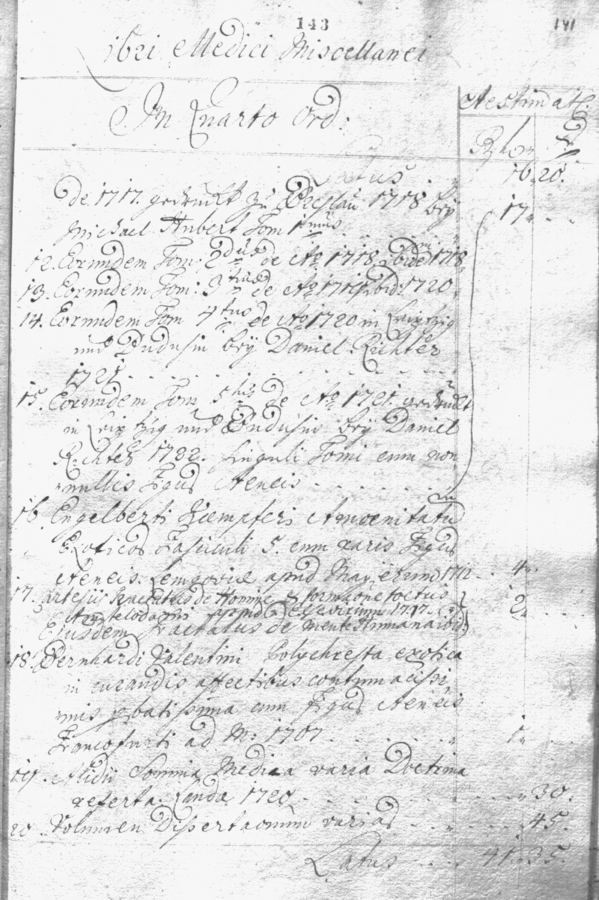 143
141
Libri Medici Miscellanei
In Quarto Ord:
Aestimat:
16 20.
de 1717. gedruckt zu Breslau 1718 bey
Michael Hubert Tom 1mus.
17
12. Eorundem Tom: 2dus de Ao 1718. ibid 1718
13. Eorundem Tom: 3tius de Ao 1719. ibid: 1720.
14. Eorundem Tom 4tus de Ao 1720 in Leipzig
und Budusin bey Daniel Richter
1721.
15. Eorundem Tom 5tus de Ao 1721. gedruckt
in Leipzig und Budusin bey Daniel
Richter 1722. singuli Tomi cum non
nullis Figuris Aeneis
16. Engelberti Kaempferi Amoenitatum
Exoticar Fasciculi 5. cum variis Figuris
Aeneis. Lemgoviae apud Mayerum 1712. 4.
17. Cartesii Tractatus de Homine & formatione foetus
Amstelodami 2.
Ejusdem Tractatus de mente Humana ibid
18. Bernhardi Valentini Polychresta exotica
in curandis affectibus contumacissi
mis probatissima cum Figuris Aeneis
Francofurti ad M: 1701. 1.
19. Somnia Medica varia Doctrina
referta. 1720. 30.
20. Volumen Dissertationum varias 45.
Latus 41. 35.